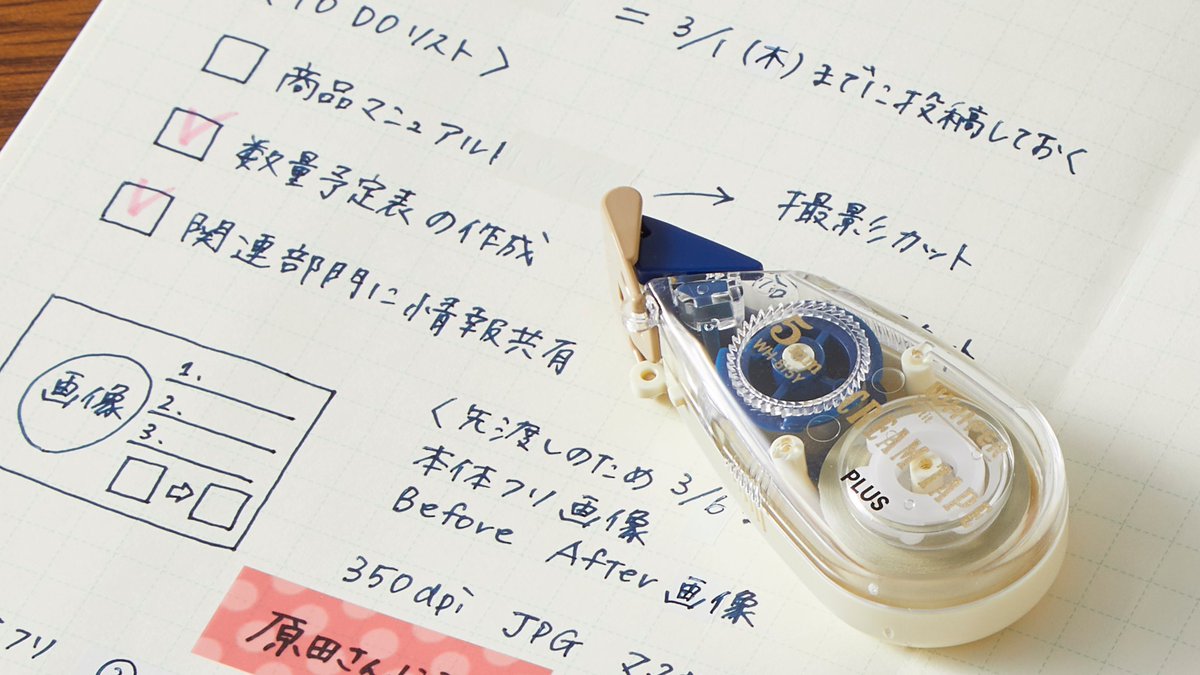 TO DO リスト〉
□ 商品マニュアル
☑ 数量予定表の作成
☑ 関連部門に情報共有
= 3/1 (木) までに投稿しておく
→ 撮影カット
画像
1.
2.
3.
〈先渡しのため 3/6
本体フリ画像
Before After 画像
350dpi JPG
原田さんに
フリ
5mm
WH-815Y
PLUS